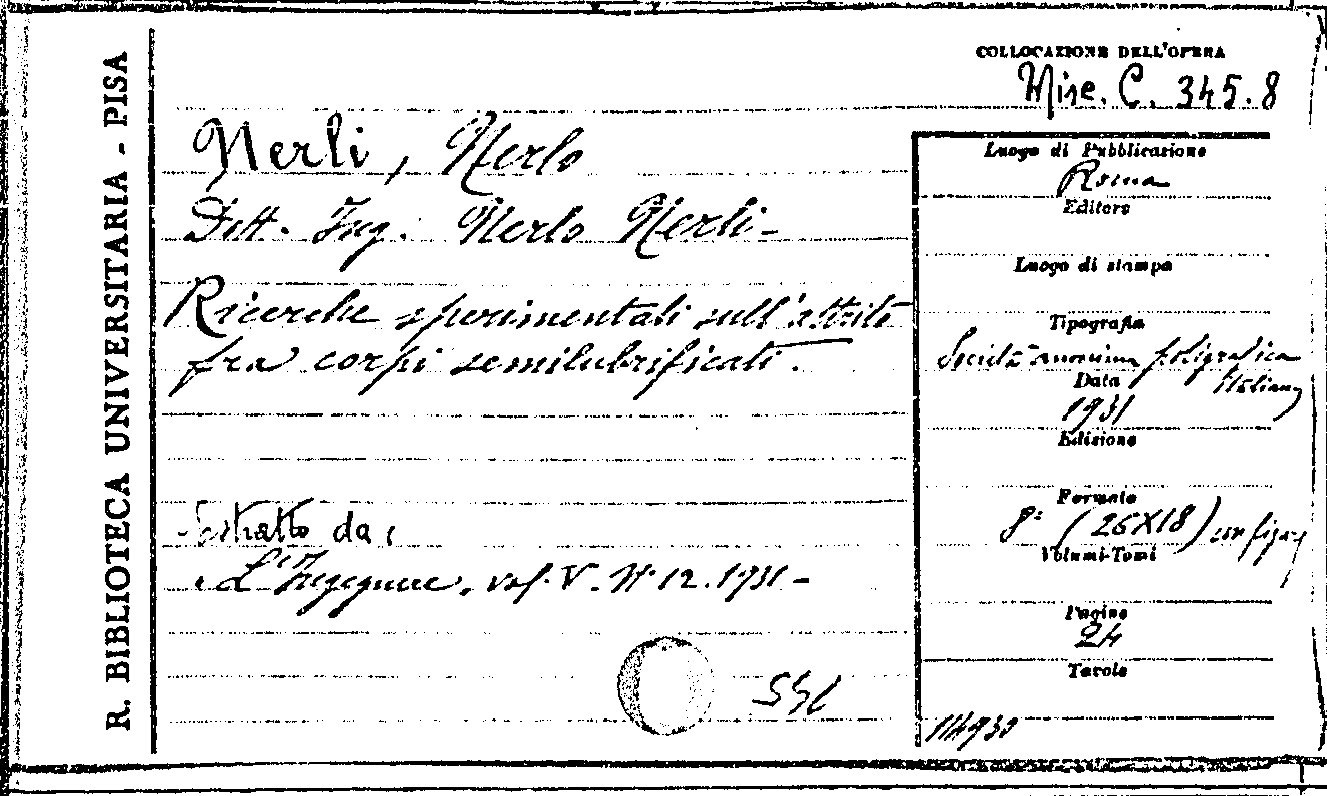 R. BIBLIOTECA UNIVERSITARIA - PISA
COLLOCAZIONE DELL'OPERA
Misc. C. 345.8
Nerli, Nerlo
Dott. Ing. Nerlo Nerli-
Ricerche sperimentali sull'attrito
fra corpi semilubrificati.
Estratto da:
"L'Ingegnere, vol. V. N. 12. 1931-
Luogo di Pubblicazione
Roma
Editore
Luogo di stampa
Tipografia
Società anonima poligrafica
italiana
Data
1931
Edizione
Formato
8° (26X18) con figure
Volumi-Tomi
Pagine
24
Tavole
114930